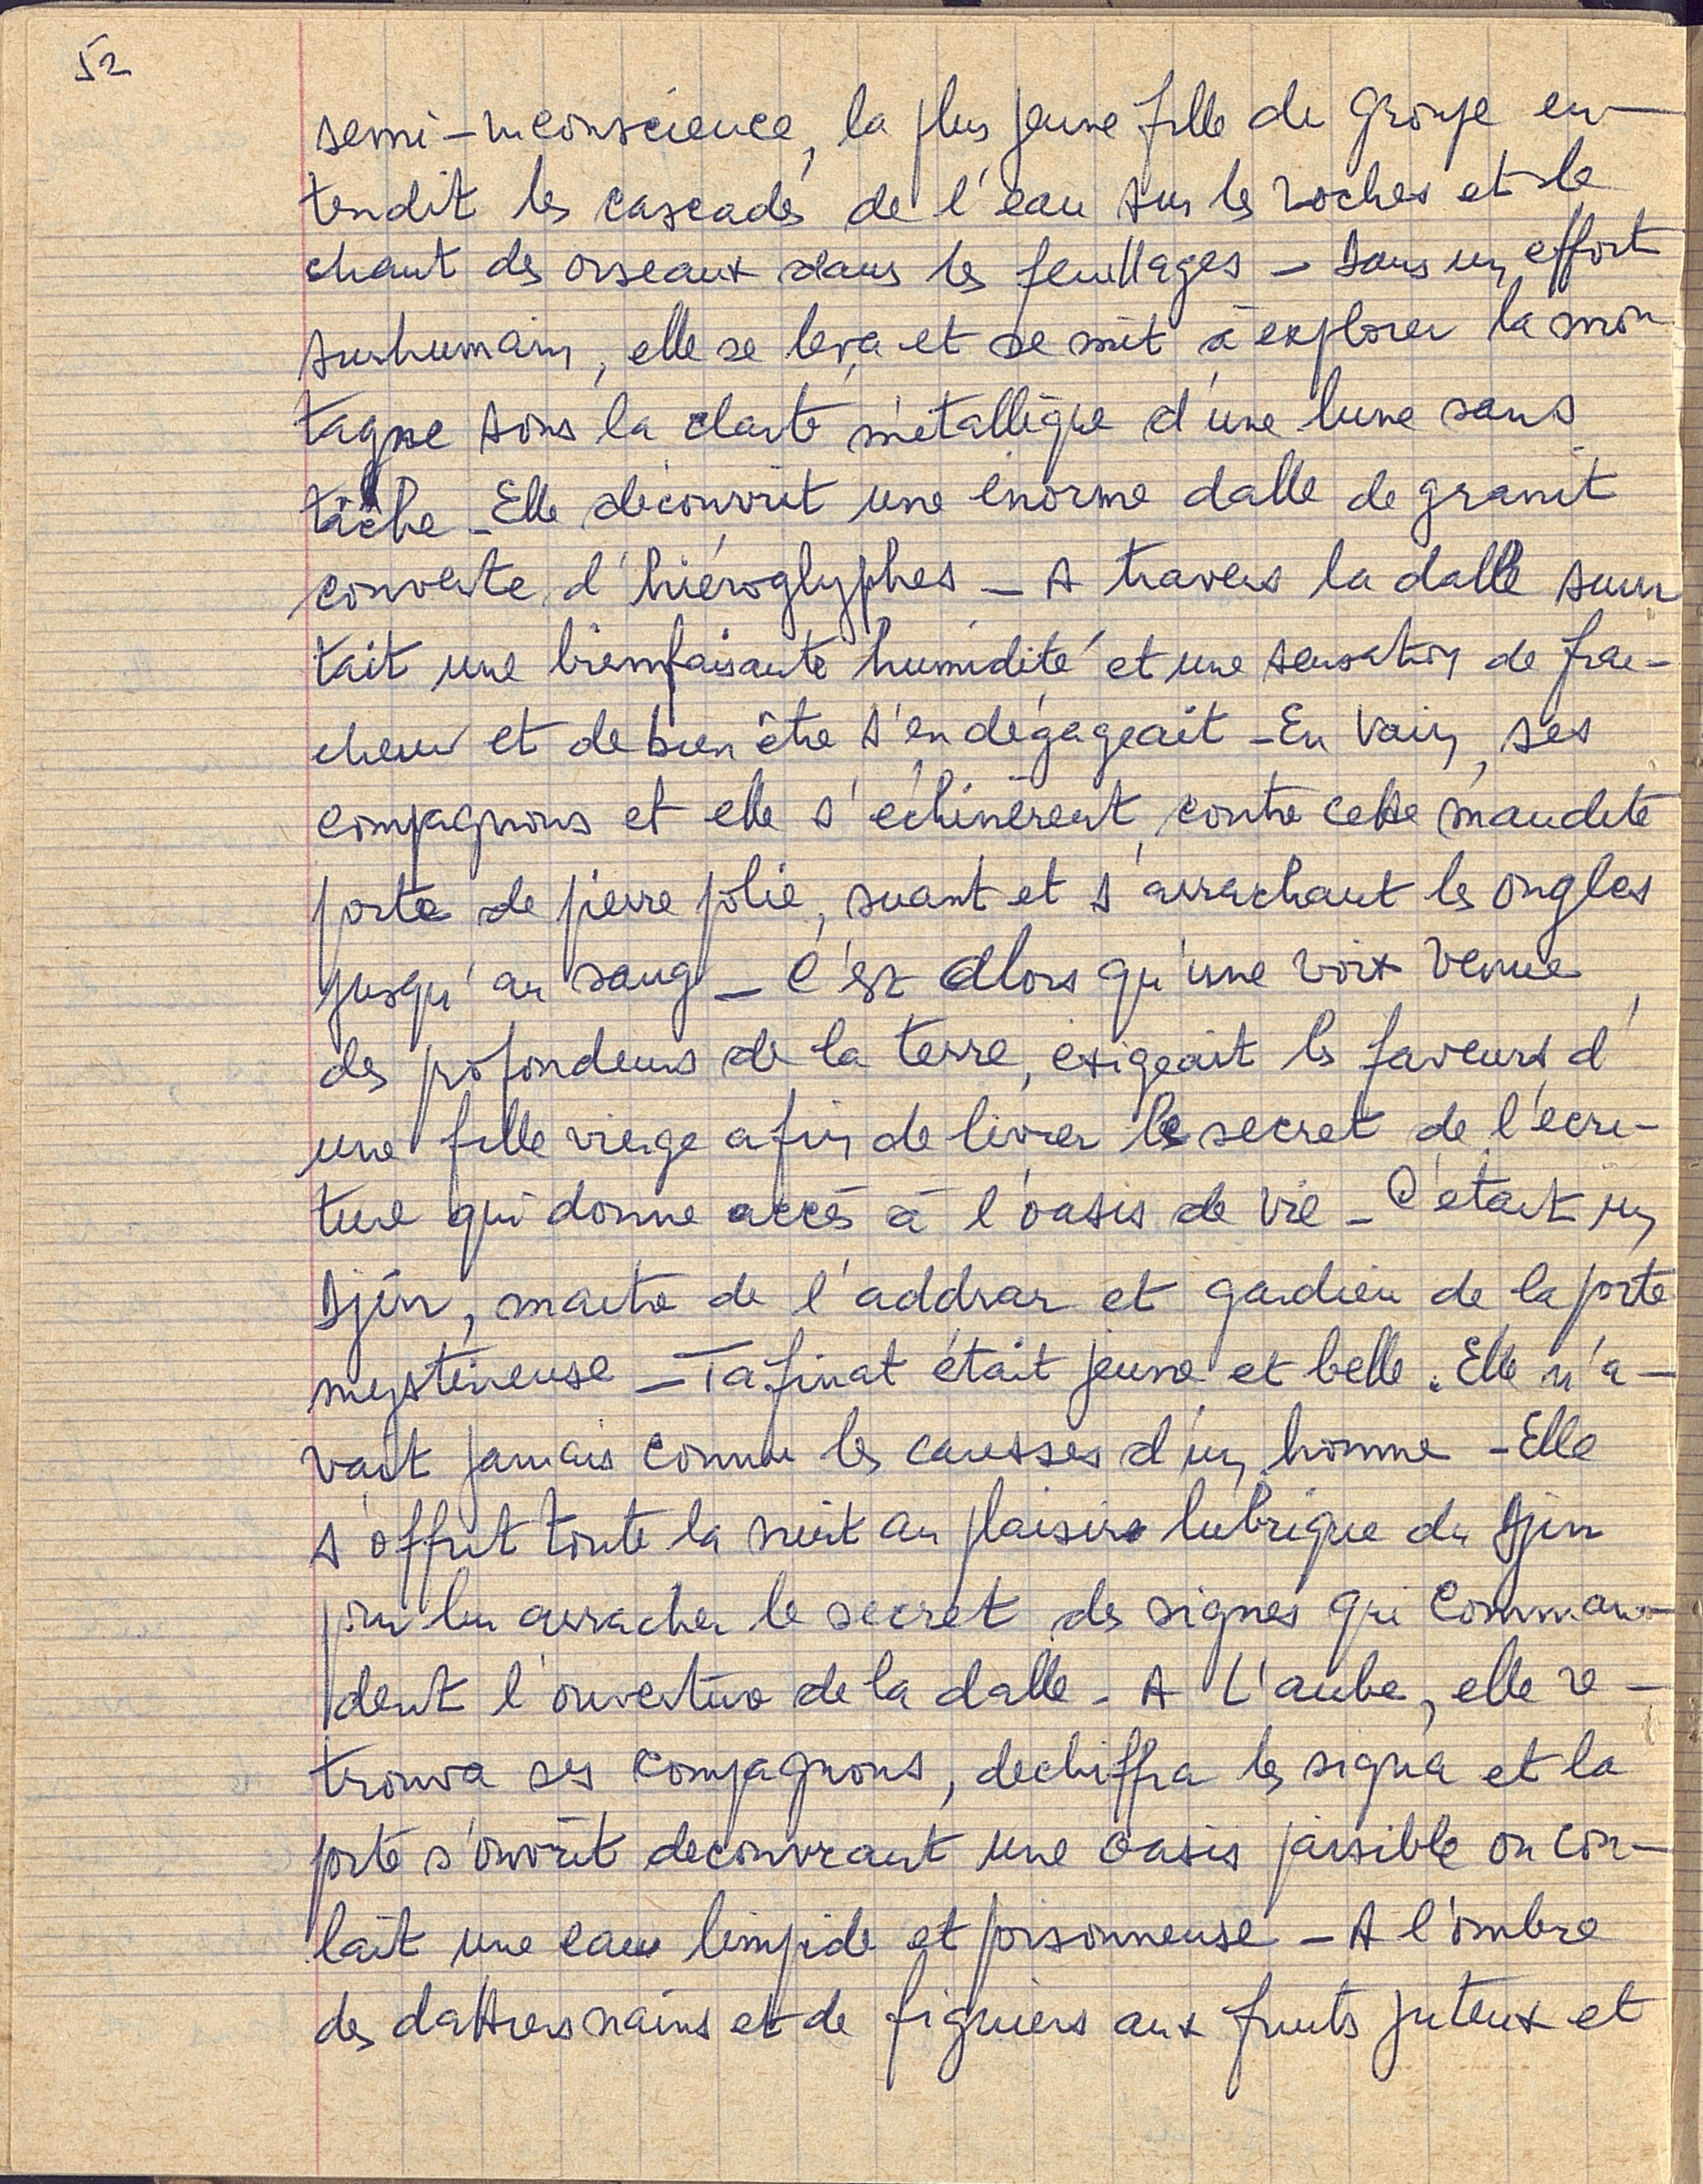 52
semi-inconscience, la plus jeune fille du groupe en-
tendit les cascades de l'eau sur les roches et le
chant des oiseaux dans les feuillages - Dans un effort
surhumain, elle se leva et se mit à explorer la mon
tagne sous la clarté métallique d'une lune sans
tâche - Elle découvrit une énorme dalle de granit
couverte d'hiéroglyphes - A travers la dalle suin
tait une bienfaisante humidité et une sensation de frai-
cheur et de bien être s'en dégageait - En vain, ses
compagnons et elle s'échinèrent contre cette maudite
porte de pierre polie, suant et s'arrachant les ongles
jusqu'au sang - C'est alors qu'une voix venue,
des profondeurs de la terre, exigeait les faveurs d'
une fille vierge afin de livrer le secret de l'écri-
ture qui donne accès à l'oasis de vie - C'était un
Djin, maitre de l'addrar et gardien de la porte
mystérieuse - Tafinat était jeune et belle. Elle n'a-
vait jamais connu les caresses d'un homme - Elle
s'offrit toute la nuit au plaisir lubrique du Djin
pour lui arracher le secret des signes qui comman-
dent l'ouverture de la dalle - A L'aube, elle re-
trouva ses compagnons, dechiffra les signes et la
porte s'ouvrit decouvrant une oasis paisible ou cou-
lait une eau limpide et poisonneuse - A l'ombre
des dattiers nains et de figuiers aux fruits juteux et